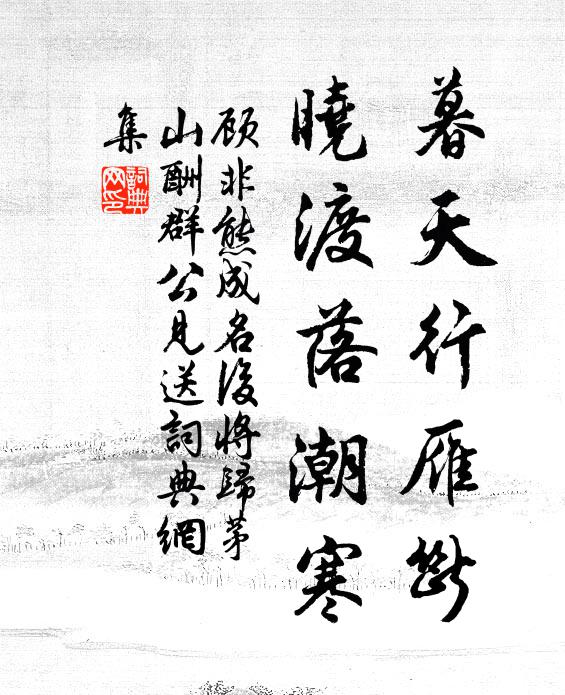 暮天行雁斷
曉渡落潮寒
顧非熊成名後將歸茅
山酬群公見送詞典網
集
詞典
网印